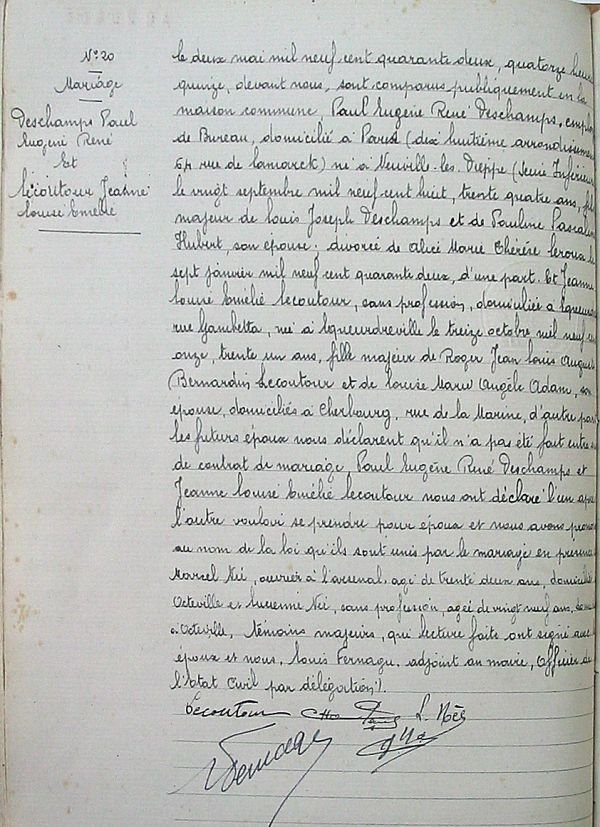 N° 20
Mariage
Deschamps Paul
Eugène René
Et
Lecoutour Jeanne
Louise Emélie
le deux mai mil neuf cent quarante deux, quatorze heures
quinze, devant nous, sont comparus publiquement en la
maison commune, Paul Eugène René Deschamps, emplo
de Bureau, domicilié à Paris (dix huitième arrondissement
64 rue de Lamarck) né à Neuville-les-Dieppe (Seine Inférieure
le vingt septembre mil neuf cent huit, trente quatre ans, fils
majeur de Louis Joseph Deschamps et de Pauline Pascaline
Hubert, son épouse; divorcé de Alice Marie Thérèse Leroux le
sept janvier mil neuf cent quarante deux, d'une part. Et Jeanne
Louise Emélie Lecoutour, sans profession, domiciliée à Equeurd
rue Gambetta, née à Equeurdreville le treize octobre mil neuf cen
onze, trente un ans, fille majeur de Roger Jean Louis Auguste
Bernardin Lecoutour et de Louise Marie Angèle Adam, son
épouse, domiciliés à Cherbourg, rue de la Marine, d'autre part
les futurs époux nous déclarent qu'il n'a pas été fait entre
de contrat de mariage, Paul Eugène René Deschamps et
Jeanne Louise Emélie Lecoutour nous ont déclaré l'un apr
l'autre vouloir se prendre pour époux et nous avons prono
au nom de la loi qu'ils sont unis par le mariage en presence
Marcel Néé, ouvrier à l'arsenal, agé de trente deux ans, domicilié
Octeville et Lucienne Néé, sans profession, agée de vingt neuf ans, dom
à Octeville, témoins majeurs, qui lecture faite ont signé avec
époux et nous, Louis Fernagu, adjoint au maire, Officier de
l'Etat Civil par délégation).
Lecoutour
L. Néé